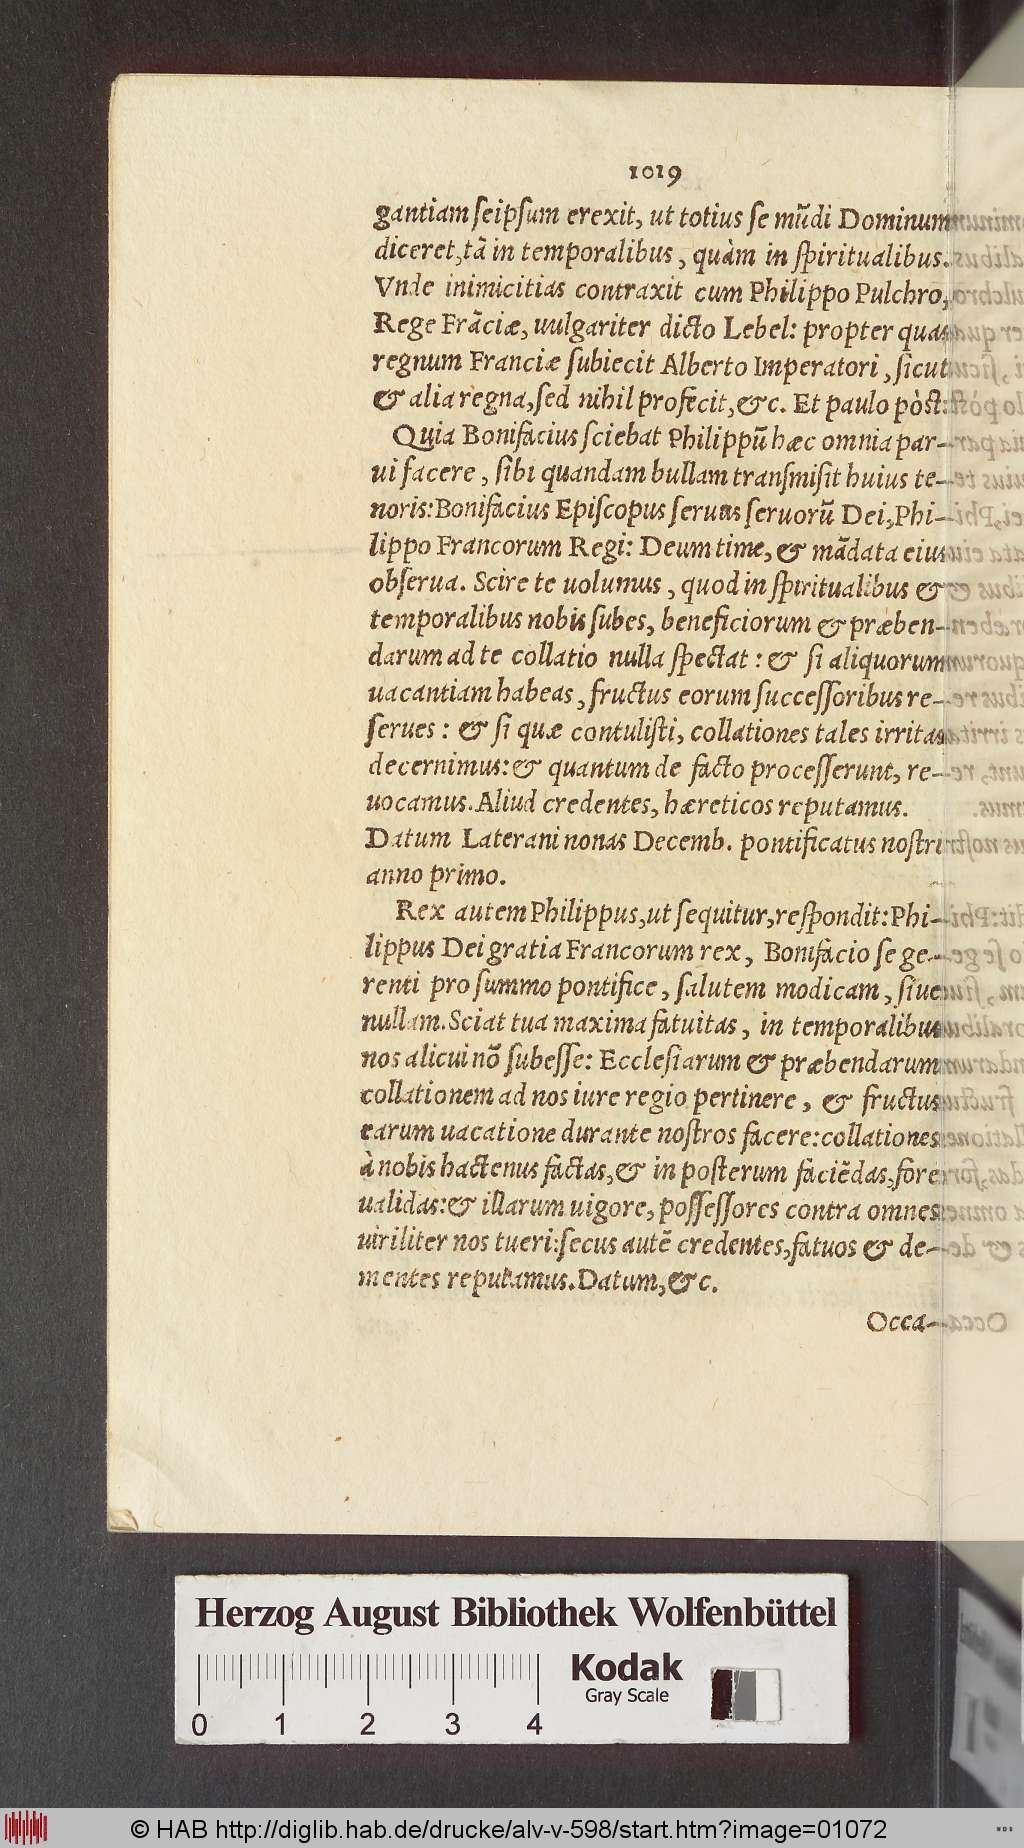 1019
gantiam ſeipſum erexit, ut totius ſe mũdi Dominum
diceret, tã in temporalibus, quàm in ſpiritualibus.
Vnde inimicitias contraxit cum Philippo Pulchro,
Rege Frãciæ, uulgariter dicto Lebel: propter quas
regnum Franciæ ſubiecit Alberto Imperatori, ſicut
& alia regna, ſed nihil profecit, &c. Et paulo pòſt:
Quia Bonifacius ſciebat Philippũ hæc omnia par-
ui facere, ſibi quandam bullam tranſmiſit huius te-
noris: Bonifacius Epiſcopus ſeruus ſeruorũ Dei, Phi-
lippo Francorum Regi: Deum time, & mãdata eius
obſerua. Scire te uolumus, quod in ſpiritualibus &
temporalibus nobis ſubes, beneficiorum & præben-
darum ad te collatio nulla ſpectat: & ſi aliquorum
uacantiam habeas, fructus eorum ſucceſſoribus re-
ſerues: & ſi quæ contuliſti, collationes tales irritas
decernimus: & quantum de facto proceſſerunt, re-
uocamus. Aliud credentes, hæreticos reputamus.
Datum Laterani nonas Decemb. pontificatus noſtri
anno primo.
Rex autem Philippus, ut ſequitur, reſpondit: Phi-
lippus Dei gratia Francorum rex, Bonifacio ſe ge-
renti pro ſummo pontifice, ſalutem modicam, ſiue
nullam. Sciat tua maxima fatuitas, in temporalibus
nos alicui nõ ſubeſſe: Eccleſiarum & præbendarum
collationem ad nos iure regio pertinere, & fructus
earum uacatione durante noſtros facere: collationes
à nobis hactenus factas, & in poſterum faciẽdas, fore
ualidas: & illarum uigore, poſſeſſores contra omnes
uiriliter nos tueri: ſecus autẽ credentes, fatuos & de-
mentes reputamus. Datum, &c.
Occa-
Herzog August Bibliothek Wolfenbüttel
Kodak
Gray Scale
0 1 2 3 4
© HAB http://diglib.hab.de/drucke/alv-v-598/start.htm?image=01072